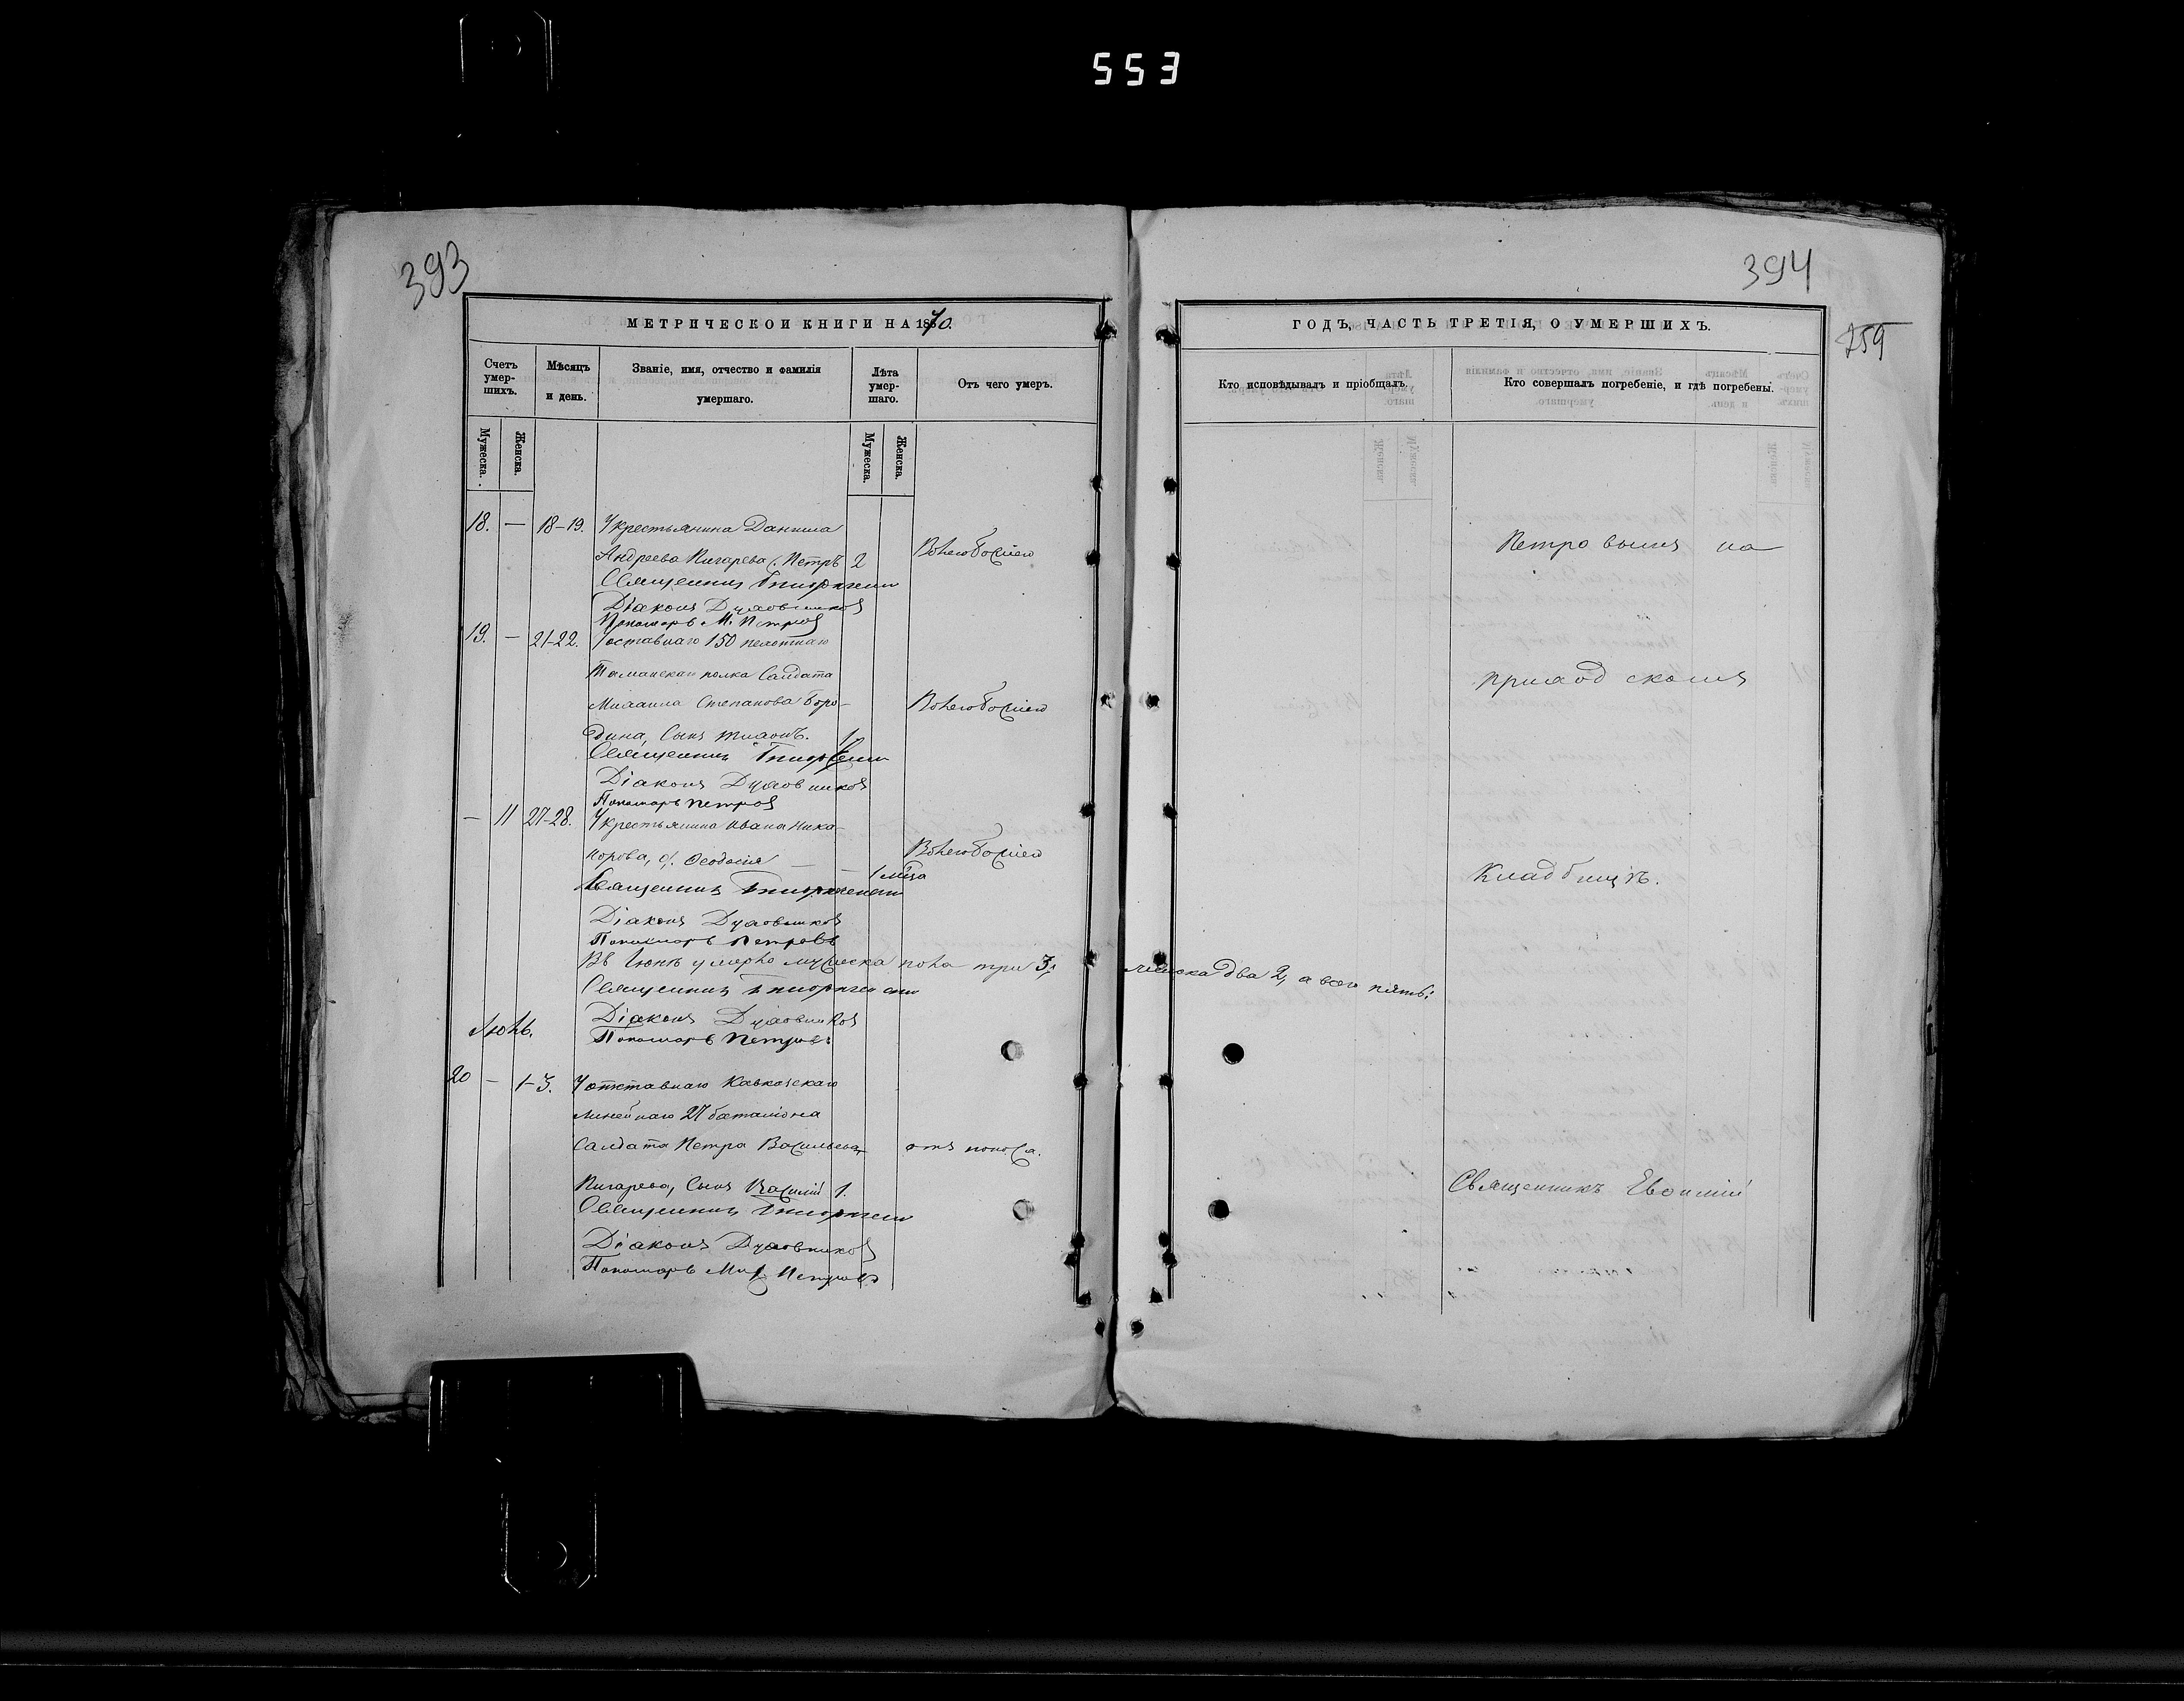 553
393
МЕТРИЧЕСКОЙ КНИГИ НА 1870.
Счетъ умер- шихъ.
Мѣсяцъ и день.
Званіе, имя, отчество и фамилія умершаго.
Лѣта умер- шаго.
Отъ чего умеръ.
Мужеска.
Женска.
Мужеска.
Женска.
18. — 18-19. У крестьянина Данила
Андреева Пигарева с. Петръ 2
Священникъ
Діаконъ Духовниковъ
Пономарь М. Петровъ
19. — 21-22. У оставнаго 150
Таманскаго полка Салдата
Михаила Степанова Боро-
дина, Сынъ Тихонъ. 1/2
Священникъ
Діаконъ Духовниковъ
Пономарь Петровъ
— 11 27-28. У крестьянина Ивана Ника-
норова, д. Ѳеодосія — 1 м-ца
Священникъ
Діаконъ Духовниковъ
Пономарь Петровъ
Въ Іюнѣ умерло мужеска пола три 3,
Священникъ
Діаконъ Духовниковъ
Пономарь Петровъ
Іюль.
20 — 1-3. У отставнаго Кавказскаго
линейнаго 21 баталіона
Салдата Петра Васильева
Пигарева, Сынъ Василій 1. отъ поноса.
Священникъ
Діаконъ Духовниковъ
Пономарь Мих. Петровъ
394
759
ГОДЪ, ЧАСТЬ ТРЕТІЯ, О УМЕРШИХЪ.
Кто исповѣдывалъ и пріобщалъ.
Кто совершалъ погребеніе, и гдѣ погребены.
Петровымъ на
приходскомъ
Кладбищѣ.
женска два 2, а всего пять.
Священникъ Евѳимій